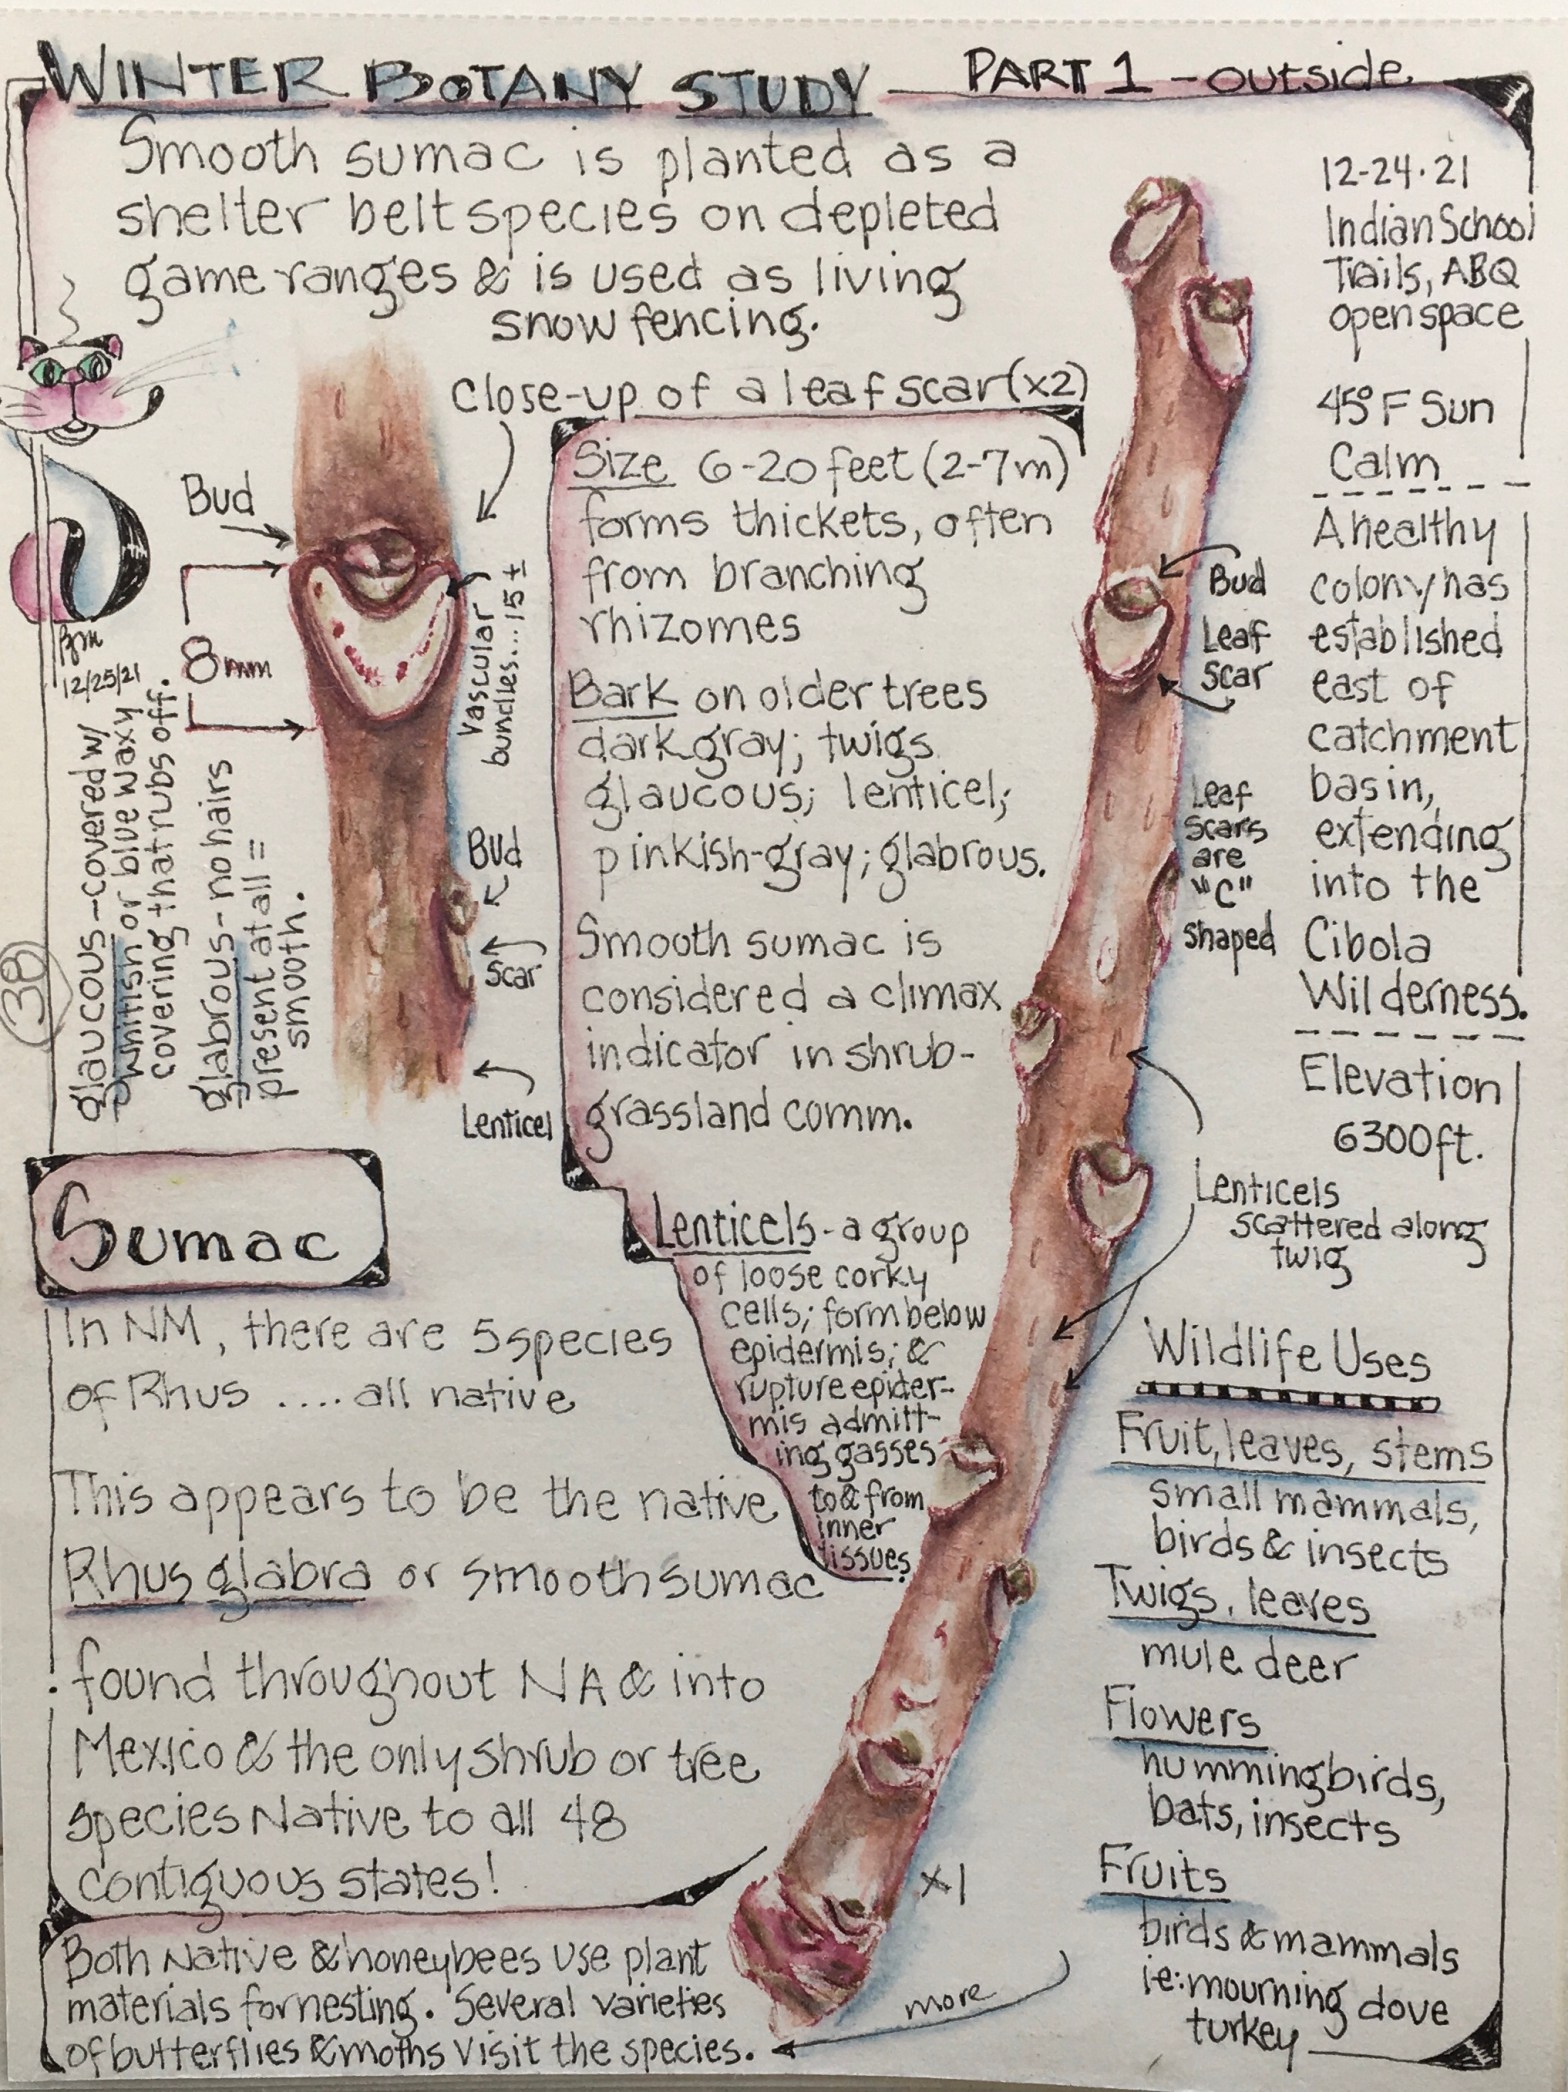 WINTER BOTANY STUDY PART 1 - outside
Smooth sumac is planted as a
shelter belt species on depleted
game ranges & is used as living
snow fencing.
12-24-21
Indian School
Trails, ABQ
open space
45°F Sun
Calm
A healthy
colony has
established
east of
catchment
basin,
extending
into the
Cibola
Wilderness.
Elevation
6300ft.
close-up of a leaf scar (x2)
Bud
8mm
Vascular
bundles... 15±
Bud
Scar
Lenticel
12/25/21
glaucous - covered w/
whitish or blue waxy
covering that rubs off.
glabrous - no hairs
present at all =
smooth.
38
Size 6-20 feet (2-7m)
forms thickets, often
from branching
rhizomes
Bark on older trees
dark gray; twigs
glaucous; lenticel;
pinkish-gray; glabrous.
Smooth sumac is
considered a climax
indicator in shrub-
grassland comm.
Bud
Leaf
Scar
Leaf
scars
are
"C"
shaped
Lenticels
scattered along
twig
Lenticels - a group
of loose corky
cells; form below
epidermis; &
rupture epider-
mis admitt-
ing gasses
to & from
inner
tissues
Sumac
In NM, there are 5 species
of Rhus .... all native
This appears to be the native
Rhus glabra or smooth sumac
found throughout NA & into
Mexico & the only shrub or tree
species Native to all 48
contiguous states!
Both Native & honeybees use plant
materials for nesting. Several varieties
of butterflies & moths visit the species.
x1
more
Wildlife Uses
Fruit, leaves, stems
small mammals,
birds & insects
Twigs, leaves
mule deer
Flowers
hummingbirds,
bats, insects
Fruits
birds & mammals
ie: mourning dove
turkey